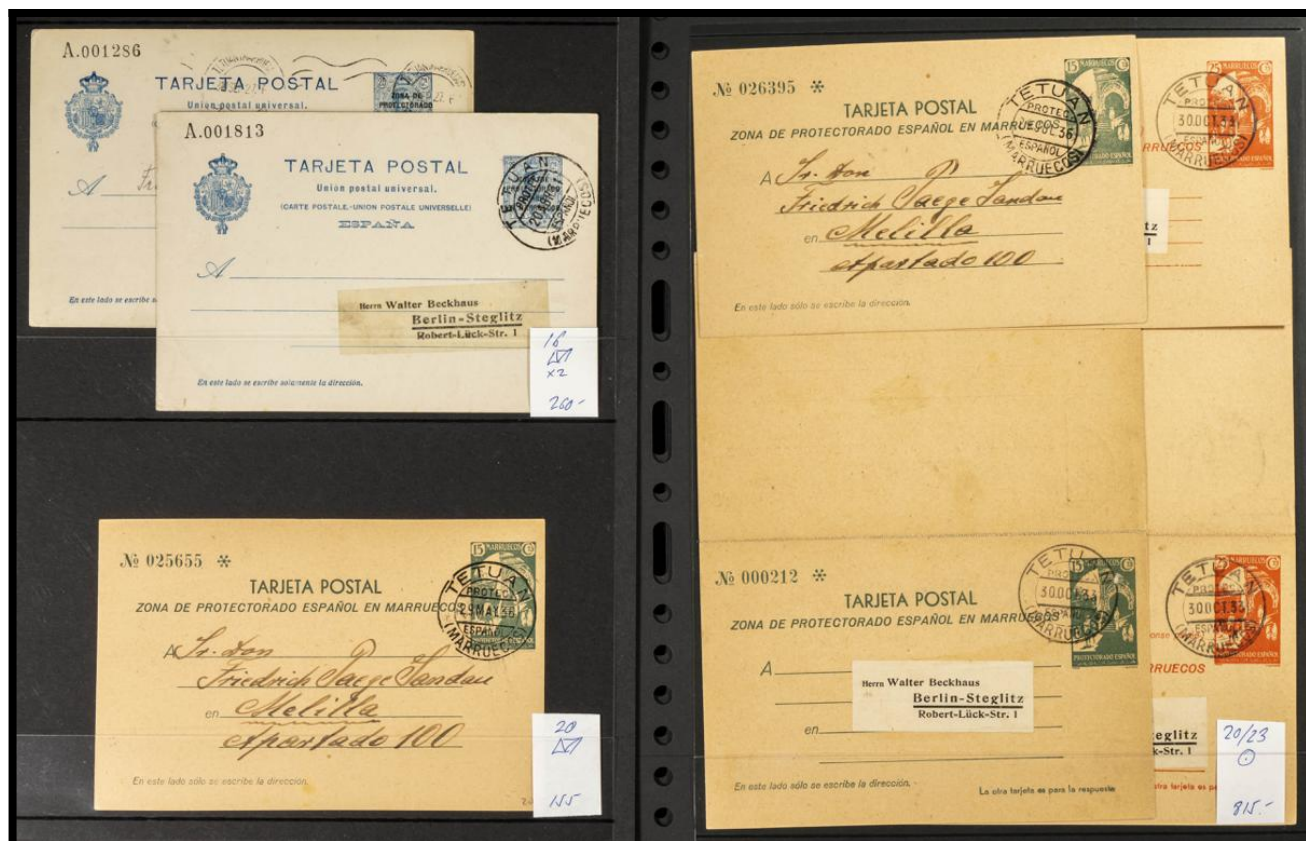 A.001286
TARJETA POSTAL
Unión postal universal.
ZONA DE
PROTECTORADO
A
En este lado se escribe
A.001813
TARJETA POSTAL
Unión postal universal.
(CARTE POSTALE.-UNION POSTALE UNIVERSELLE)
ESPAÑA
TETUAN
(MARRUECOS)
A
Herrn Walter Beckhaus
Berlin-Steglitz
Robert-Lück-Str. 1
En este lado se escribe solamente la dirección.
16
x2
260-
Nº 025655 *
TARJETA POSTAL
ZONA DE PROTECTORADO ESPAÑOL EN MARRUECOS
15 MARRUECOS
TETUAN
PROTEC
29 MAY.36
ESPAÑOL
(MARRUECOS)
A Sr. Don
Friedrich
en Melilla
Apartado 100
En este lado sólo se escribe la dirección.
20
155
Nº 026395 *
TARJETA POSTAL
ZONA DE PROTECTORADO ESPAÑOL EN MARRUECOS
15 MARRUECOS
TETUAN
PROTEC
ESPAÑOL
(MARRUECOS)
A Sr. Don
Friedrich
en Melilla
Apartado 100
En este lado sólo se escribe la dirección.
25 MARRUECOS
TETUAN
PROTEC
30 OCT.33
ESPAÑOL
(MARRUECOS)
RRUECOS
tz
1
Nº 000212 *
TARJETA POSTAL
ZONA DE PROTECTORADO ESPAÑOL EN MARRUECOS
TETUAN
PROTEC
30 OCT.33
ESPAÑOL
(MARRUECOS)
PROTECTORADO ESPAÑOL
A
Herrn Walter Beckhaus
Berlin-Steglitz
Robert-Lück-Str. 1
en
En este lado sólo se escribe la dirección.
La otra tarjeta es para la respuesta
25 MARRUECOS
TETUAN
PROTEC
30 OCT.33
ESPAÑOL
(MARRUECOS)
RRUECOS
eglitz
k-Str. 1
tra tarjeta es pa
20/23
815.-